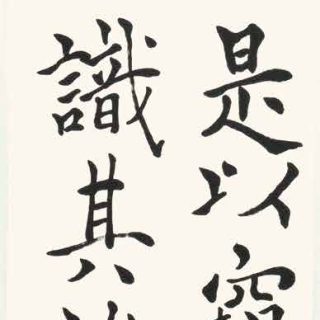 是以窺
識其